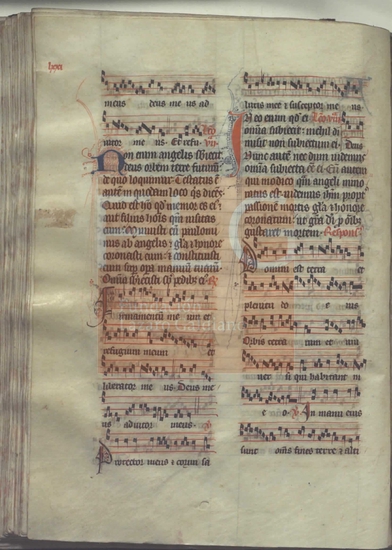 lxxi
meus deus meus ad
iutor me us Et refu
Non enim angelis subiecit
deus orbem terre futurum
de quo loquimur Testatus e
autem in quodam loco quis dicens
Quid est homo quod memor es ei
aut filius hominis quoniam visitas
eum minuisti eum paulomi
nus ab angelis gloria et honore
coronasti eum et constituisti
eum super opera manuum tuarum
Omnia subiecisti sub pedibus eius R
Firmamentum me um et
refugium meum et
liberator me us Deus me
us adiutor meus
Protector meus et cornu sa
lutis mee et susceptor me us
In eo enim quod ei
omnia subiecit nichil di
misit non subiectum ei
Nunc autem nec dum videmus
omnia subiecta ei Eum autem
qui modico quam angeli mino
ratus est videmus ihesum propter
passionem mortis gloria et honore
coronatum ut gratia dei pro omnibus
gustaret mortem
Domini est terra et
plenitu do e ius
Orbis terra rum et uni
versi qui habitant in
e o In manu eius
sunt omnes fines terre et alti